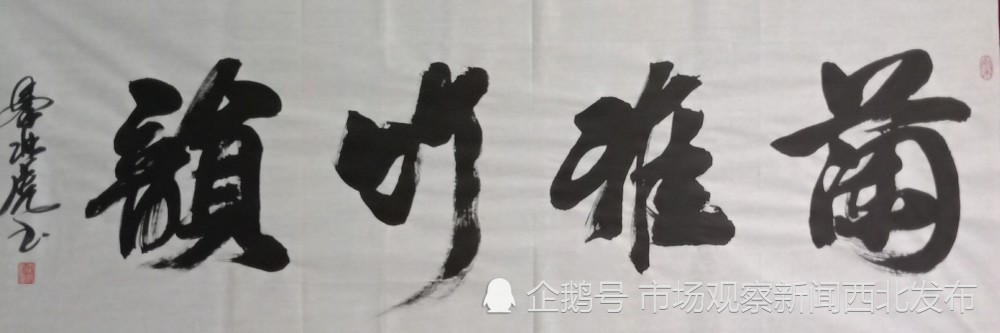 蘭雅竹韻
虎书
企鹅号 市场观察新闻西北发布